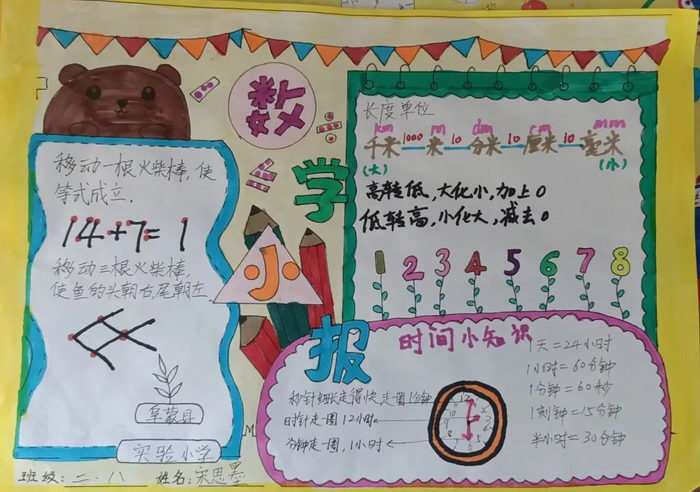 数
学
小
报
移动一根火柴棒,使
等式成立.
14+7=1
移动三根火柴棒,
使鱼的头朝右,尾朝左
阜蒙县
实验小学
班级:二.八 姓名:宋思墨
长度单位
km m dm cm mm
千米 1000 米 10 分米 10 厘米 10 毫米
(大) (小)
高转低,大化小,加上0
低转高,小化大,减去0
1 2 3 4 5 6 7 8
时间小知识
时针走一圈12小时
分针走一圈,1小时
1天=24小时
1小时=60分钟
1分钟=60秒
1刻钟=15分钟
半小时=30分钟